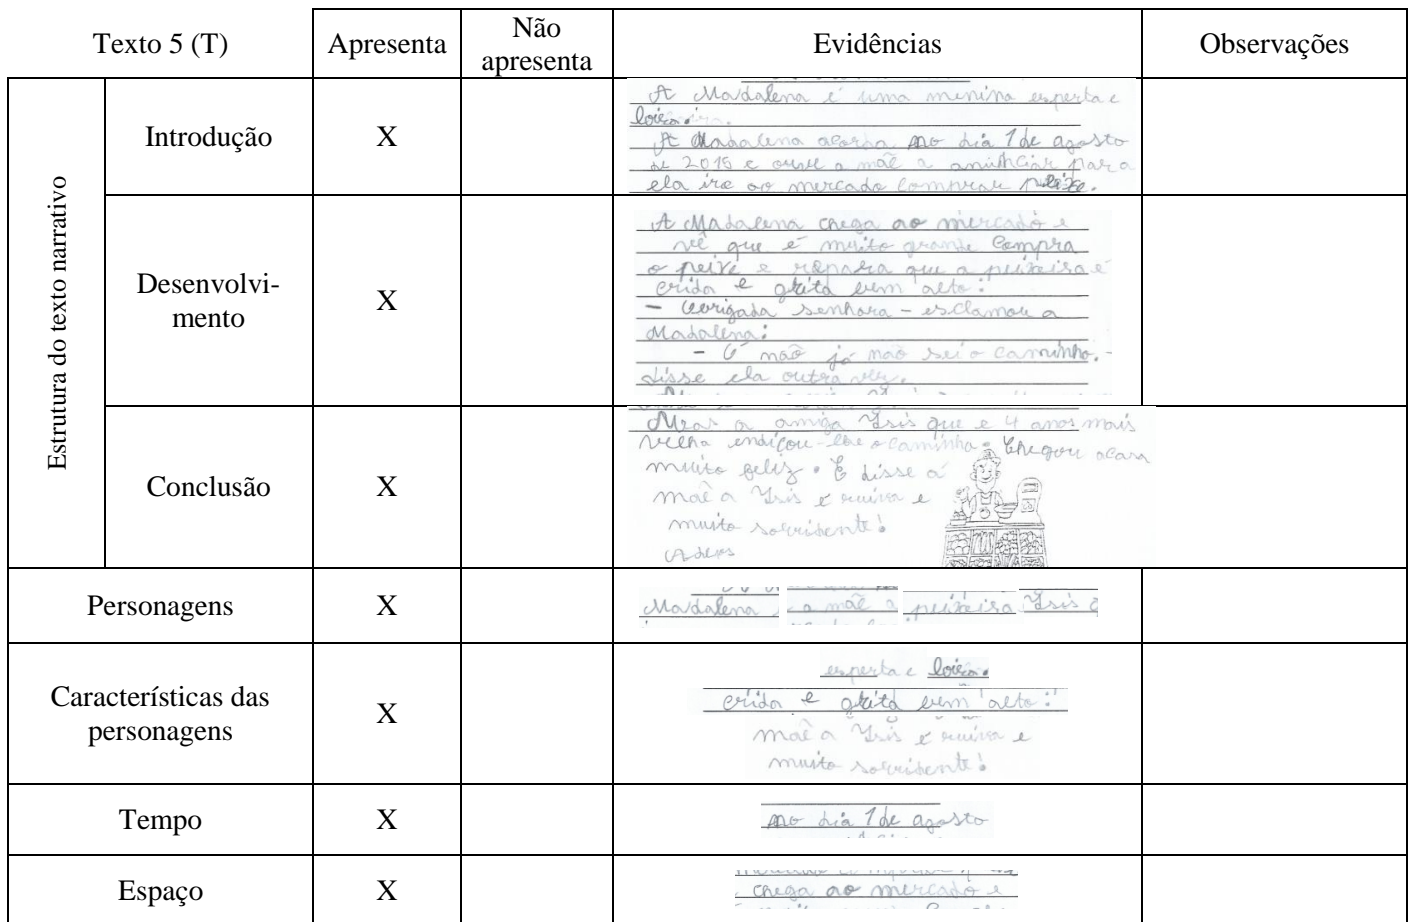 Texto 5 (T)
Apresenta
Não
apresenta
Evidências
Observações
Estrutura do texto narrativo
Introdução
X
A Madalena é uma menina esperta e
loira.
A Madalena acorda no dia 1 de agosto
de 2015 e ouve a mãe a anunciar para
ela ire ao mercado comprar peixe.
Desenvolvi-
mento
X
A Madalena chega ao mercado e
vê que é muito grande Compra
o peixe e repara que a peixeira é
crida e grita bem alto:
- obrigada senhora - esclamou a
Madalena:
- O não já não sei o caminho. -
disse ela outra vez.
Conclusão
X
Mas a amiga Isis que e 4 anos mais
velha endicou-lhe o caminho. Chegou a casa
muito feliz. E disse á
mãe a Isis é ruiva e
muito sorridente!
Adeus
Personagens
X
Madalena a mãe a peixeira Isis
Características das
personagens
X
esperta e loira.
crida e grita bem alto:
mãe a Isis é ruiva e
muito sorridente!
Tempo
X
no dia 1 de agosto
Espaço
X
chega ao mercado e